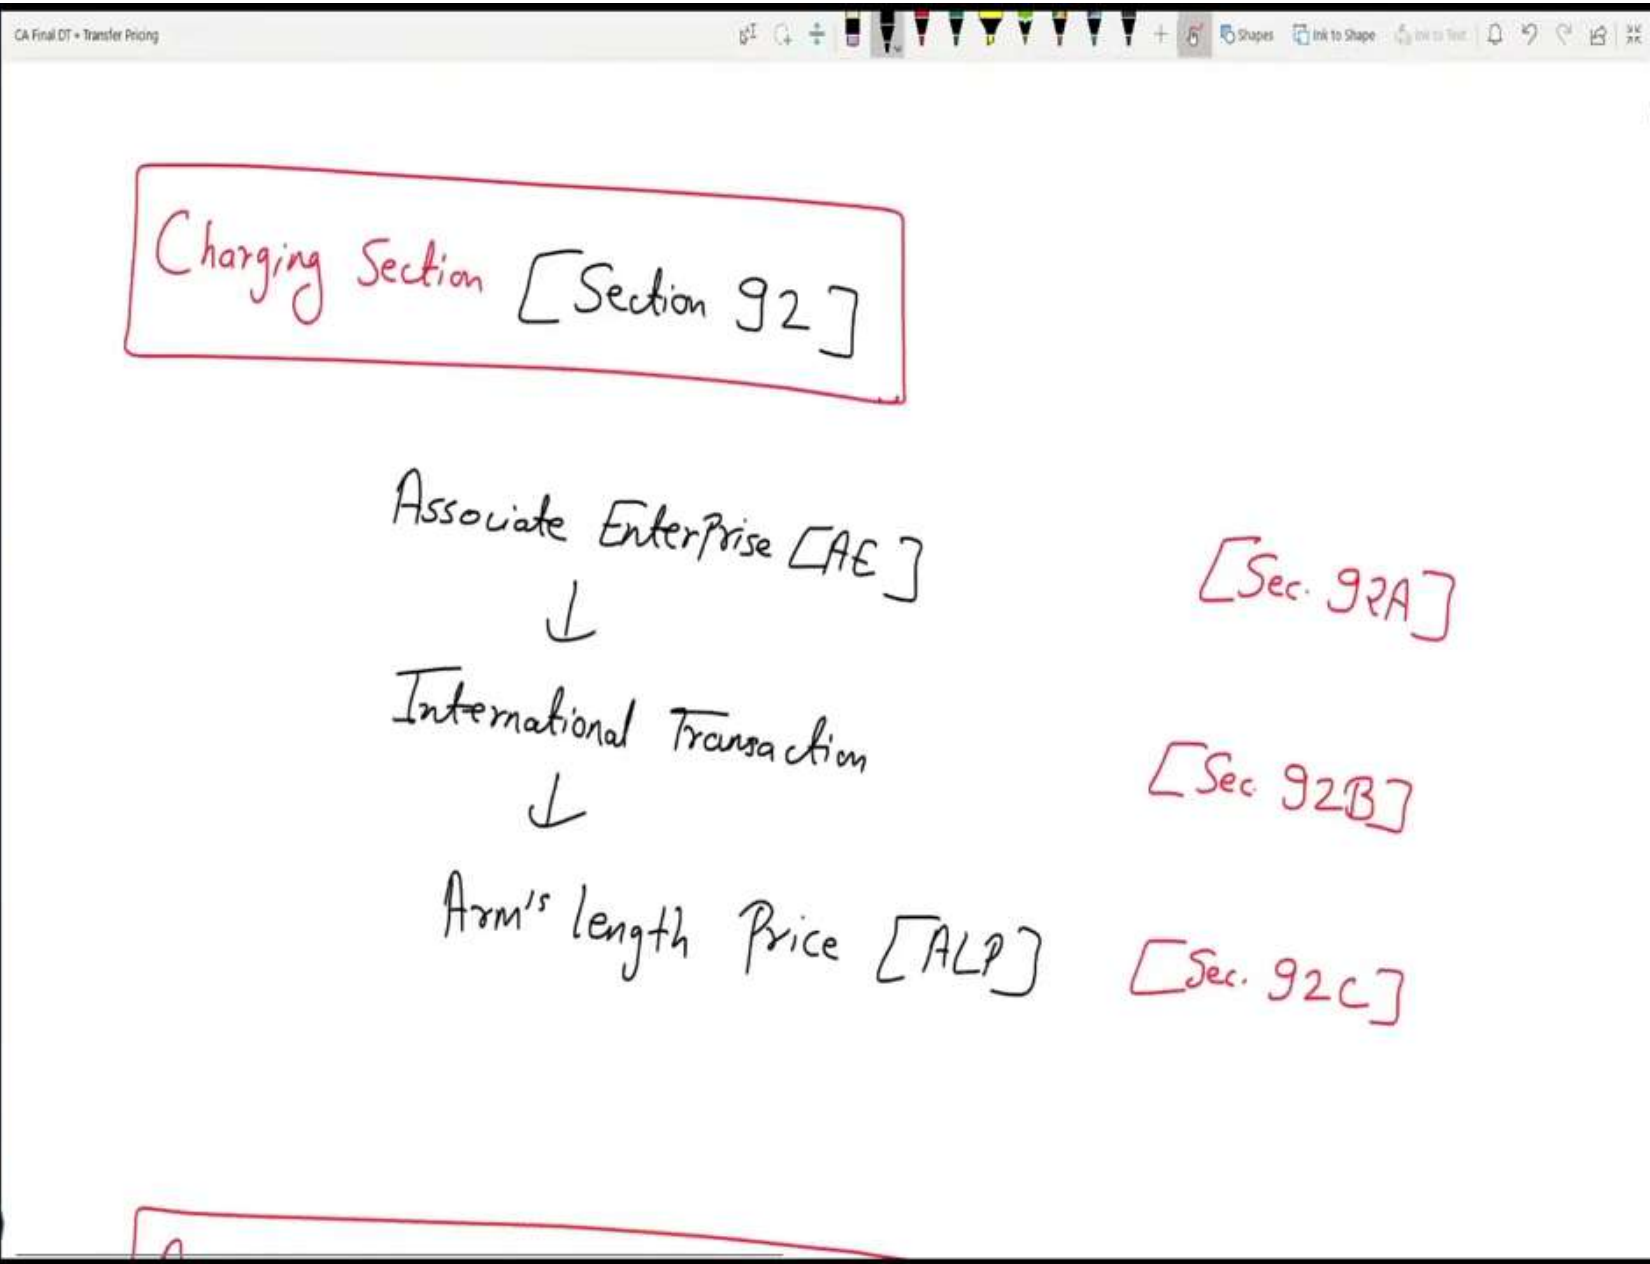 CA Final DT + Transfer Pricing
Shapes Ink to Shape Ink to Text
Charging Section [Section 92]
Associate Enterprise [AE] [Sec. 92A]
↓
International Transaction [Sec. 92B]
↓
Arm's length Price [ALP] [Sec. 92C]